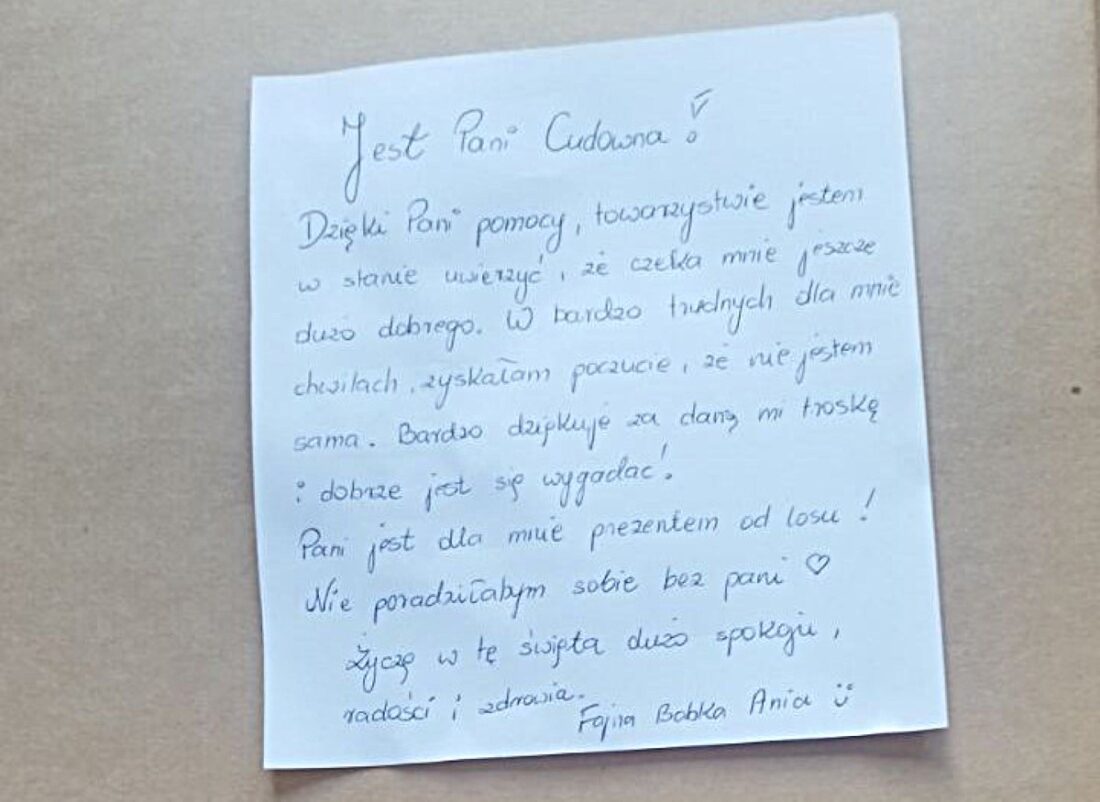 Jest Pani Cudowna!
Dzięki Pani pomocy, towarzystwie jestem
w stanie uwierzyć, że czeka mnie jeszcze
dużo dobrego. W bardzo trudnych dla mnie
chwilach, zyskałam poczucie, że nie jestem
sama. Bardzo dziękuję za daną mi troskę
i dobrze jest się wygadać!
Pani jest dla mnie prezentem od losu!
Nie poradziłabym sobie bez pani ♡
Życzę w tę święta dużo spokoju,
radości i zdrowia.
Fajna Babka Ania ü